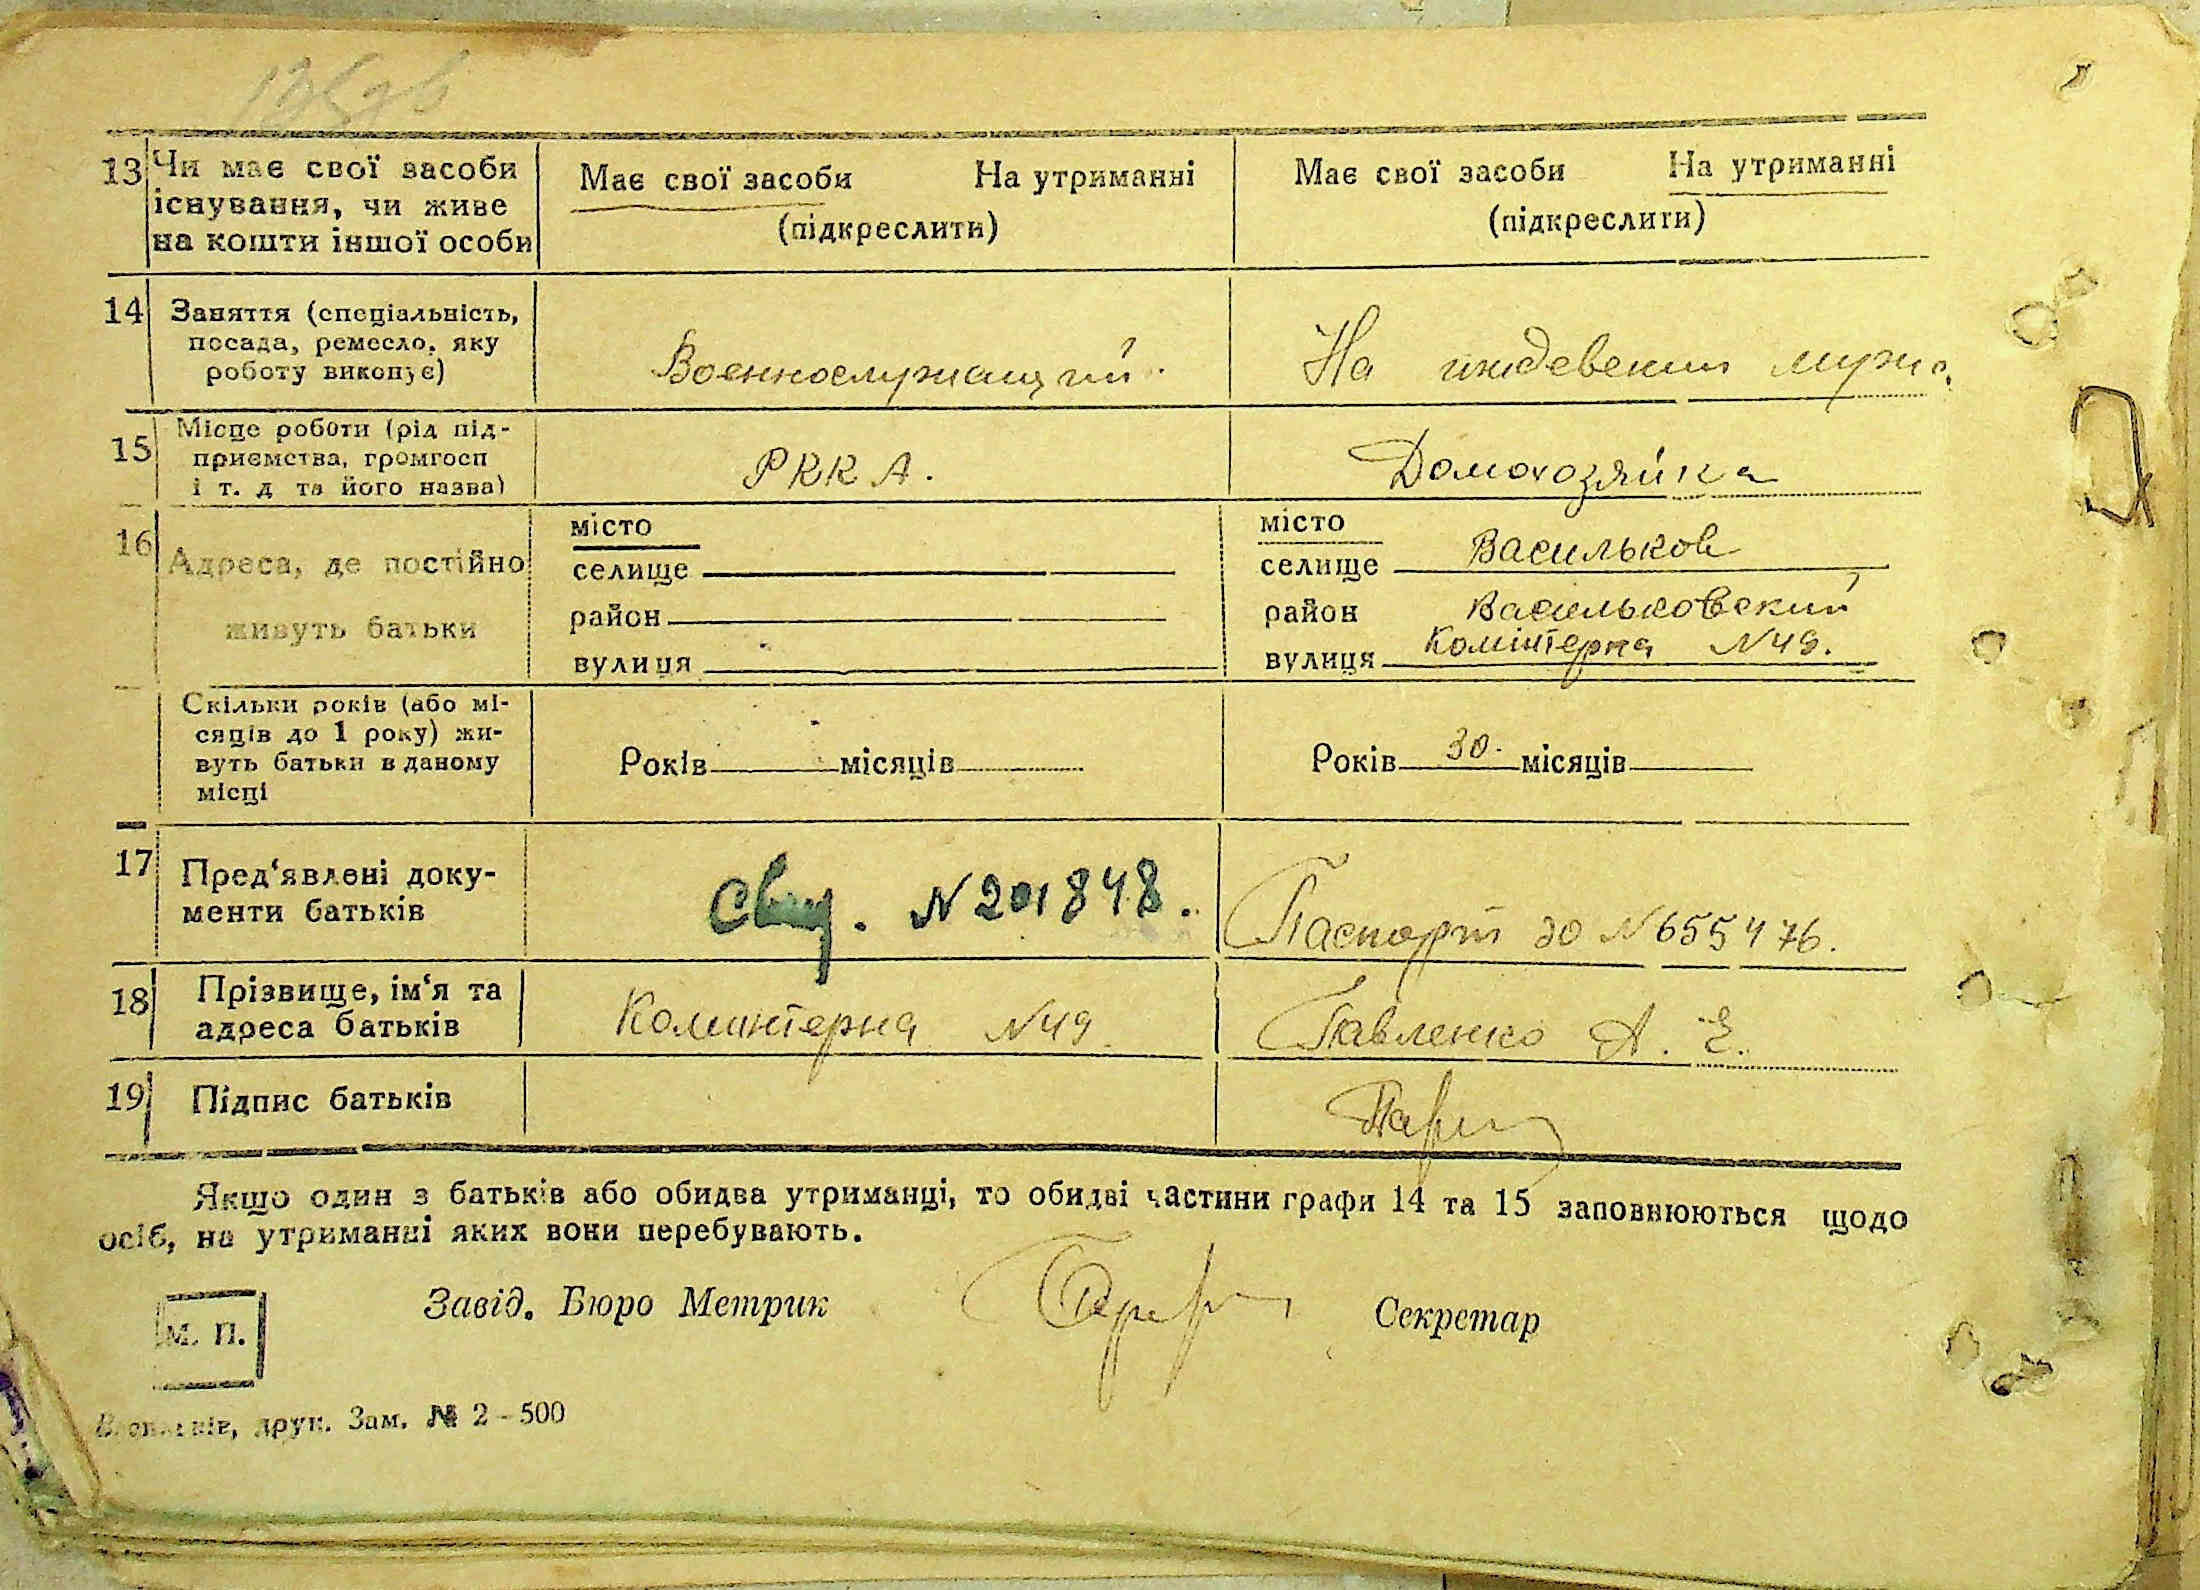 13 Чи має свої засоби існування, чи живе на кошти іншої особи
Має свої засоби На утриманні
(підкреслити)
Має свої засоби На утриманні
(підкреслити)
14 Заняття (спеціальність,
посада, ремесло, яку
роботу виконує)
Военнослужащий.
На иждевении мужа.
15 Місце роботи (рід під-
приємства, громгосп
і т. д та його назва)
РККА.
Домохозяйка
16 Адреса, де постійно
живуть батьки
місто
селище
район
вулиця
місто
селище Васильков
район Васильковский
вулиця Комінтерна N49.
Скільки років (або мі-
сяців до 1 року) жи-
вуть батьки в даному
місці
Років місяців
Років 30. місяців
17 Пред'явлені доку-
менти батьків
Свид. N201848.
Паспорт ЭО N655476.
18 Прізвище, ім'я та
адреса батьків
Коминтерна N49.
Павленко А. Е.
19 Підпис батьків
Якщо один з батьків або обидва утриманці, то обидві частини графи 14 та 15 заповнюються щодо
осіб, на утриманні яких вони перебувають.
Завід. Бюро Метрик Секретар
М. П.
друк. Зам. № 2 - 500